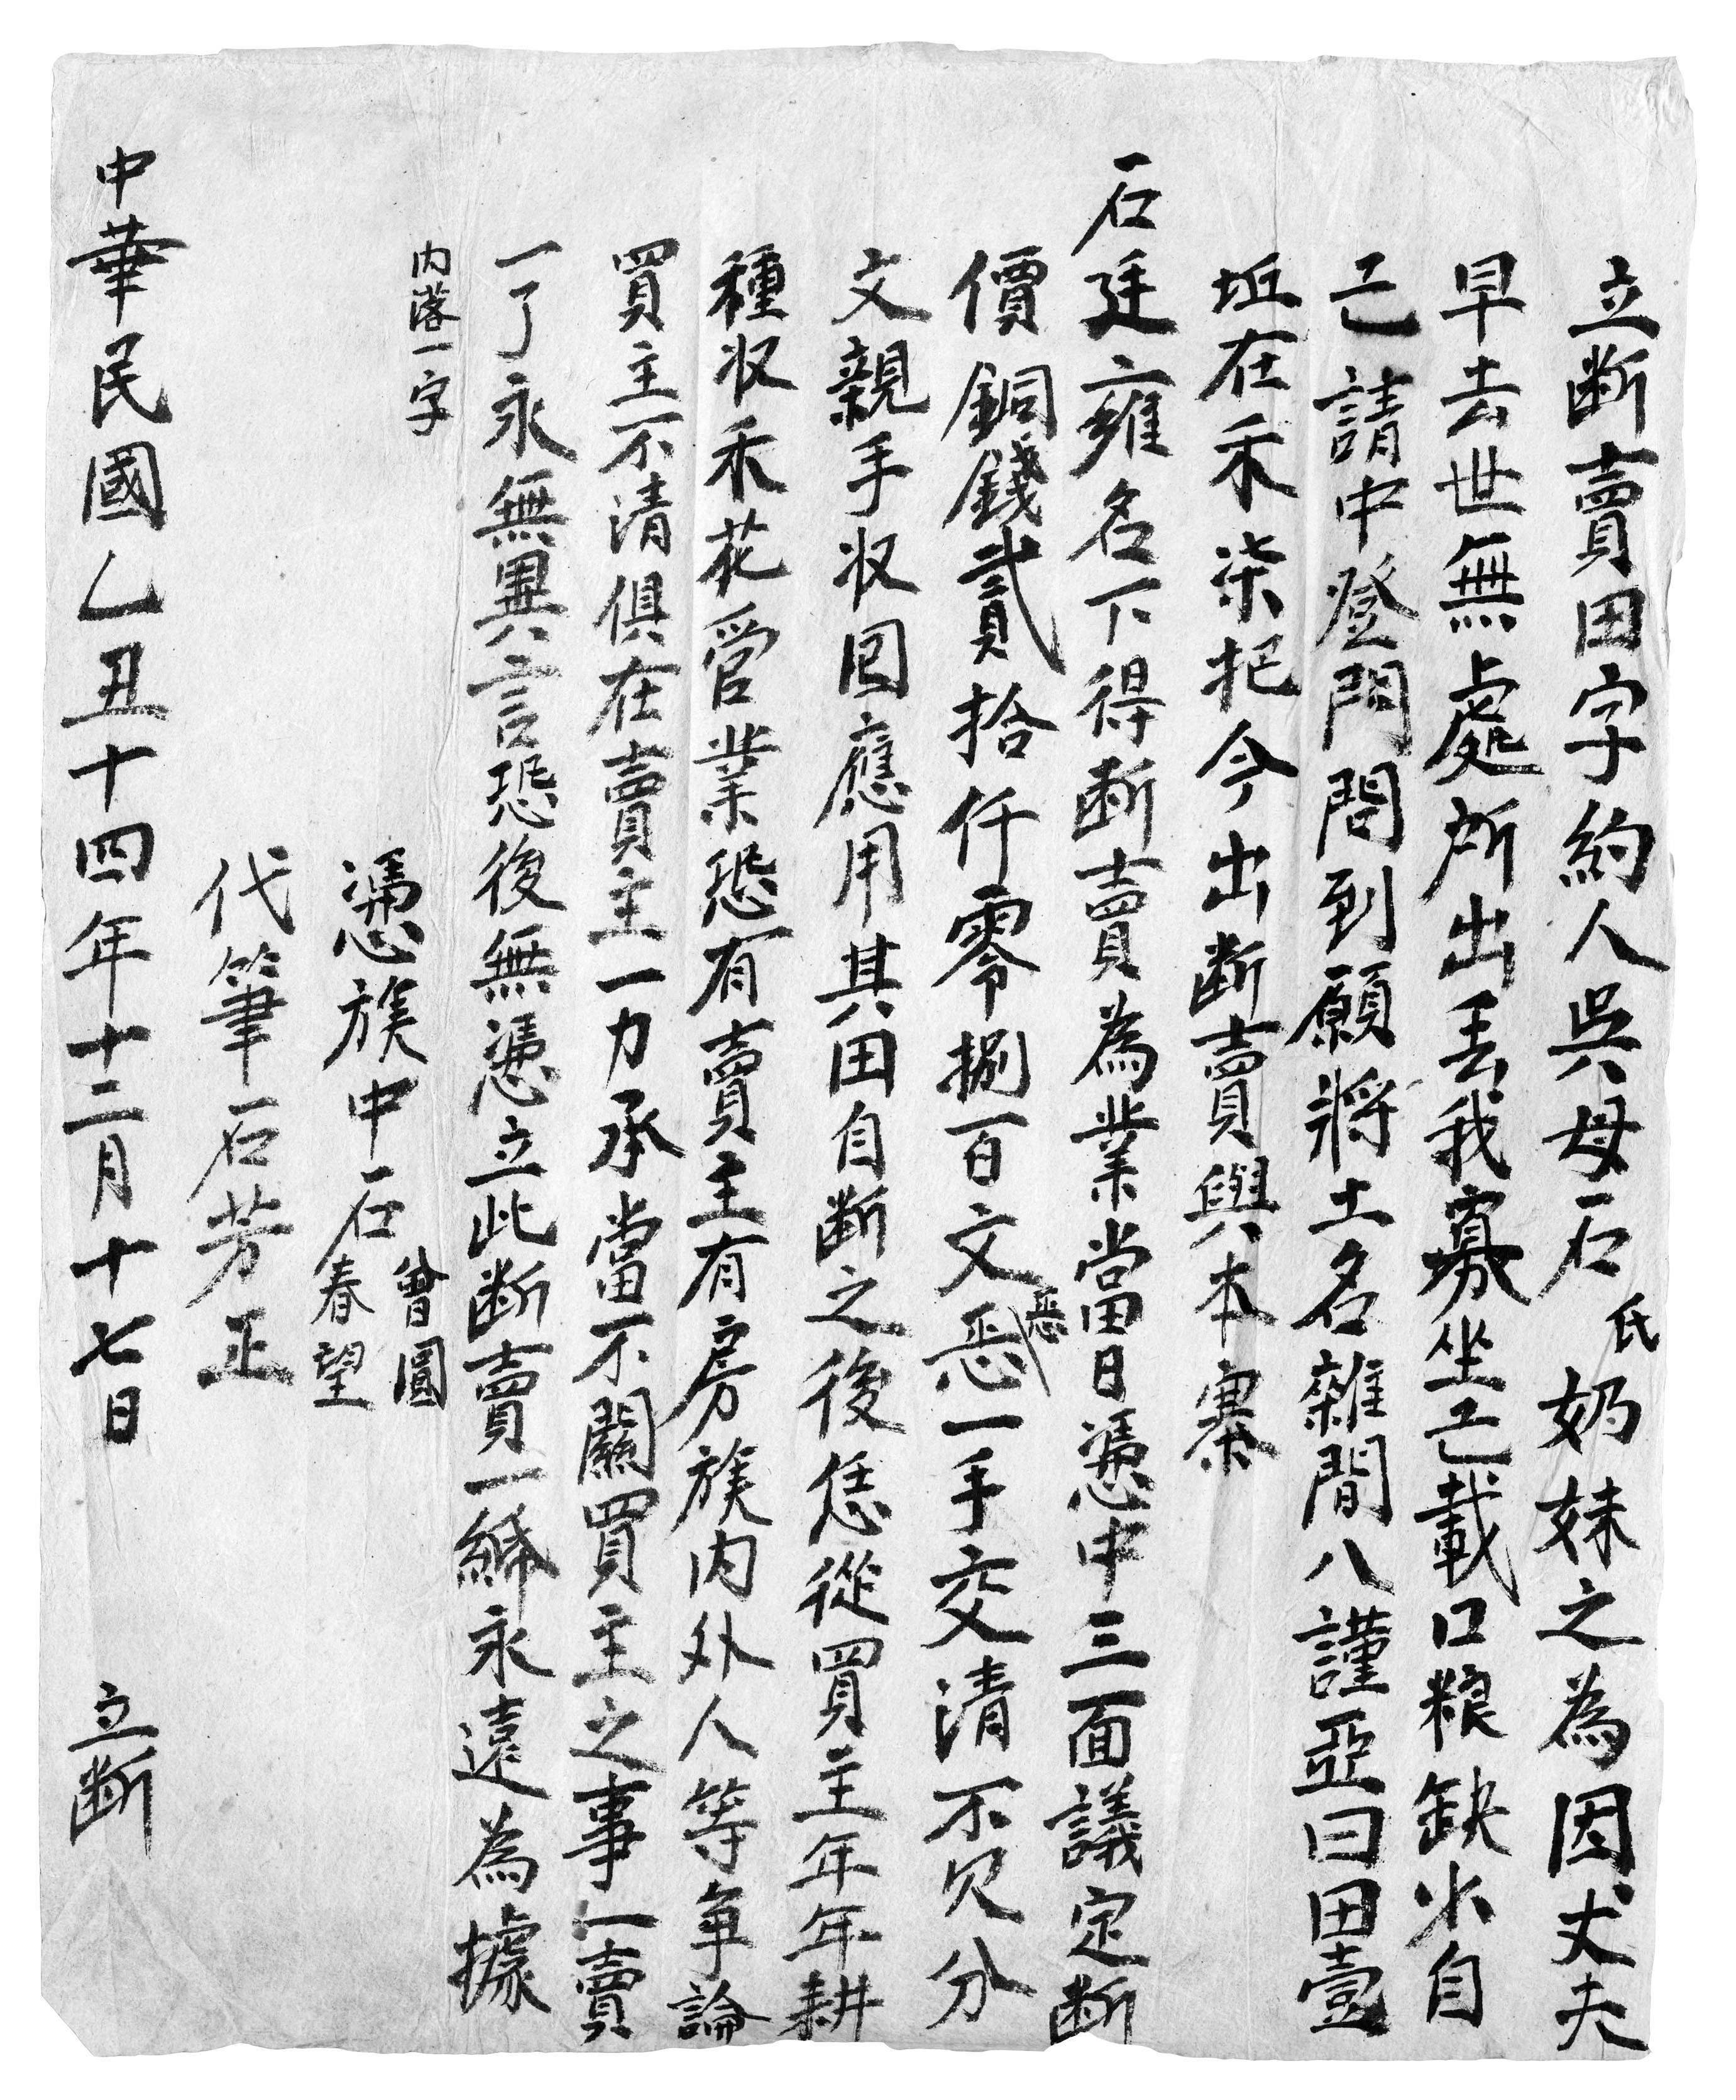 立断賣田字約人吳母石氏奶妹之為因丈夫
早去世無處所出丟我寡坐己載口粮缺少自
己請中登門問到願將土名雜間八謹亞曰田壹
坵在禾柒把今出断賣與本寨
石廷雍名下得断賣為業當日憑中三面議定断
價銅錢貳拾仟零捌百文悉悉一手交清不欠分
文親手收回應用其田自断之後恁從買主年年耕
種收禾花管業恐有賣主有房族内外人等争論
買主不清俱在賣主一力承當不關買主之事一賣
一了永無異言恐後無憑立此断賣一綈永遠為據
内落一字
憑族中石曾圓
春望
代筆石芳正
中華民國乙丑十四年十二月十七日 立断